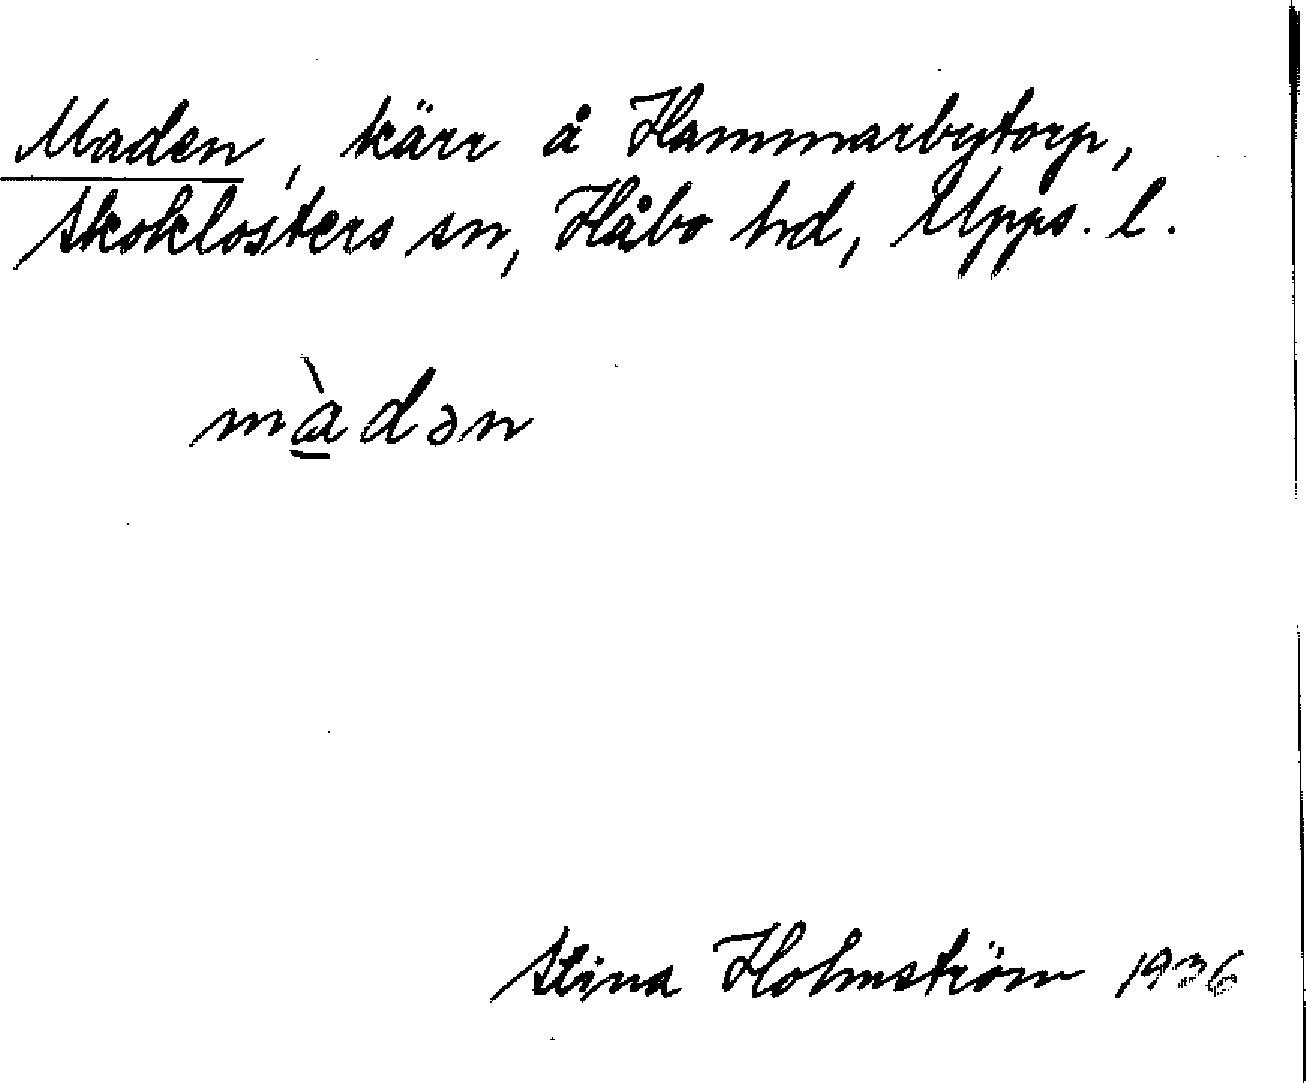 Maden, kärr å Hammarbytorp,
Skoklosters sn, Håbo hd, Upps. l.
màdən
Stina Holmström 1936